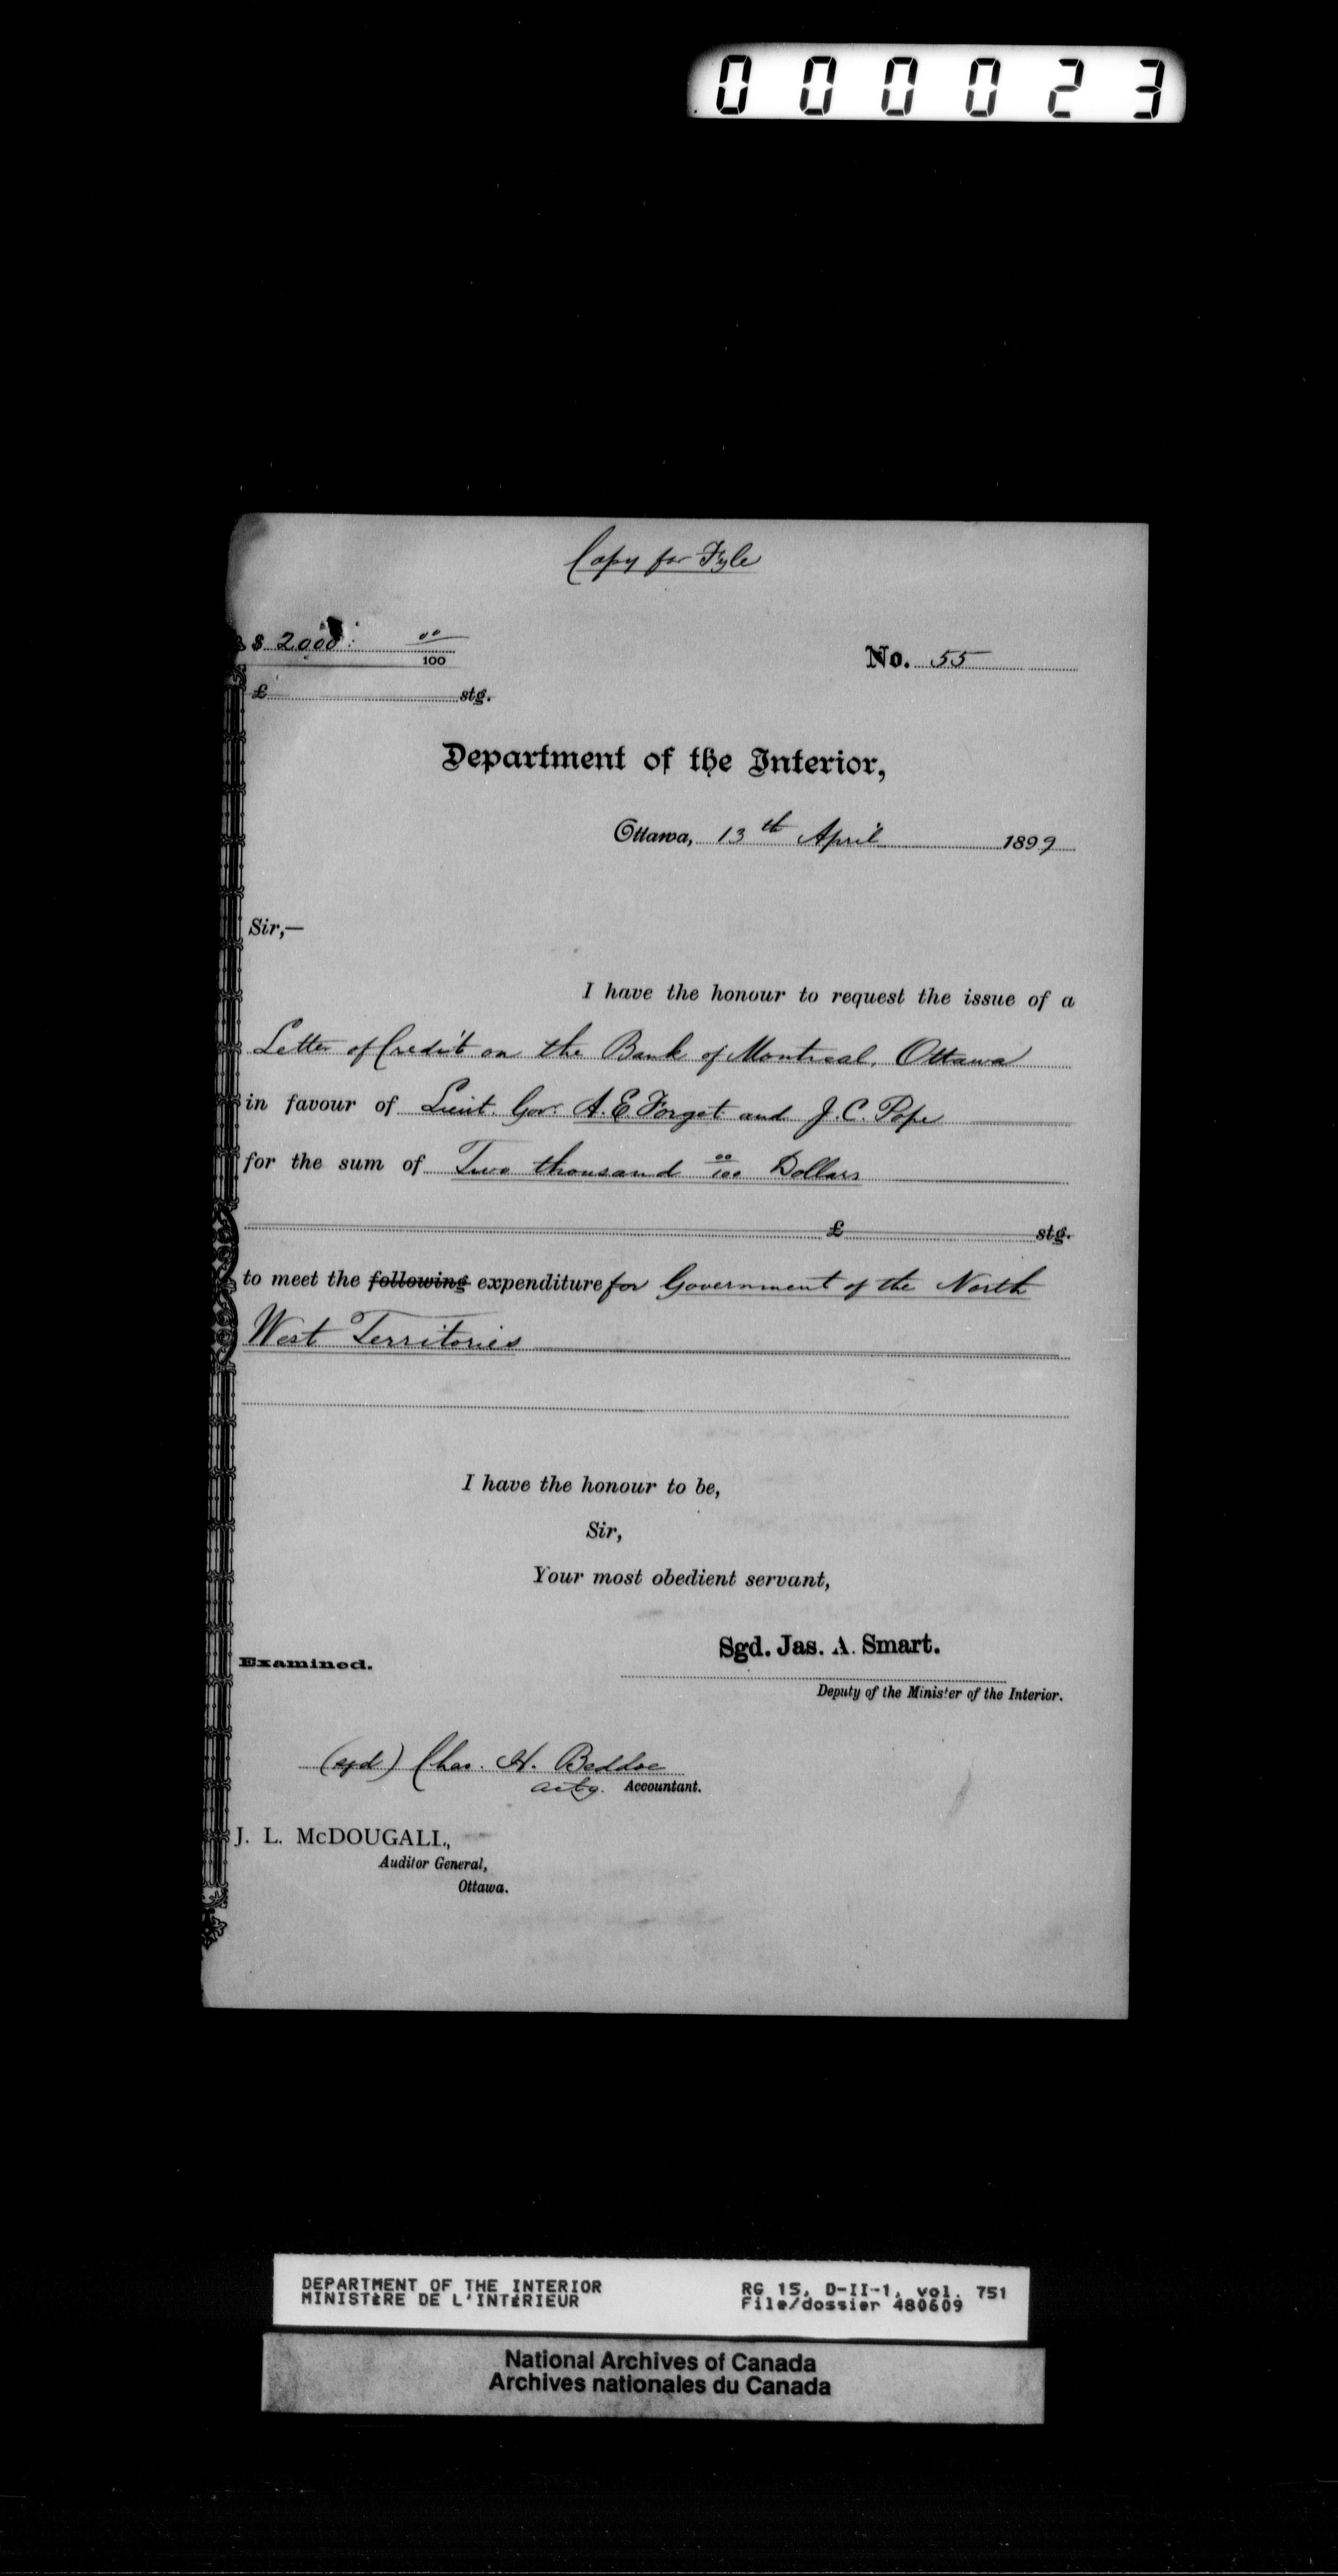 000023
Copy for Fyle
$ 2000: 00/100
No. 55
£ stg.
Department of the Interior,
Ottawa, 13th April 1899
Sir,—
I have the honour to request the issue of a
Letter of Credit on the Bank of Montreal, Ottawa
in favour of Lieut. Gov. A. E. Forget and J. C. Pope
for the sum of Two thousand 00/100 Dollars
£ stg.
to meet the following expenditure for Government of the North
West Territories
I have the honour to be,
Sir,
Your most obedient servant,
Sgd. Jas. A. Smart.
Examined.
Deputy of the Minister of the Interior.
(sgd) Chas. H. Beddoe
actg. Accountant.
J. L. McDOUGALL,
Auditor General,
Ottawa.
DEPARTMENT OF THE INTERIOR RG 15, D-II-1, vol. 751
MINISTÈRE DE L'INTÉRIEUR File/dossier 480609
National Archives of Canada
Archives nationales du Canada